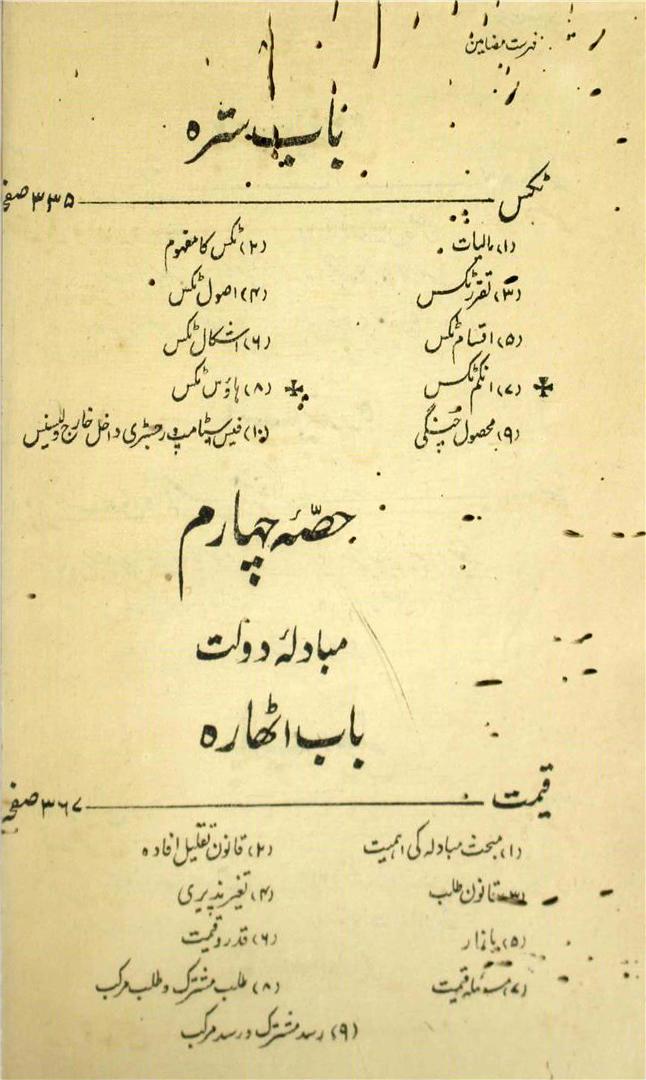 فہرست مضامین
۸
باب سترہ
ٹکس ۳۳۵ صفحہ
(۱) مالیات (۲) ٹکس کا مفہوم
(۳) تقرر ٹکس (۴) اصول ٹکس
(۵) اقسام ٹکس (۶) اشکال ٹکس
(۷) انکم ٹکس (۸) ہاؤس ٹکس
(۹) محصول چنگی (۱۰) فیس سٹامپ ورجسٹری داخل خارج ولیسنس
حصّۂ چہارم
مبادلۂ دولت
باب اٹھارہ
قیمت ۳۶۷ صفحہ
(۱) مبحث مبادلہ کی اہمیت (۲) قانون تقلیل افادہ
(۳) قانون طلب (۴) تغیر پذیری
(۵) بازار (۶) قدر وقیمت
(۷) مسئلہ قیمت (۸) طلب مشترک وطلب مرکب
(۹) رسد مشترک ورسد مرکب